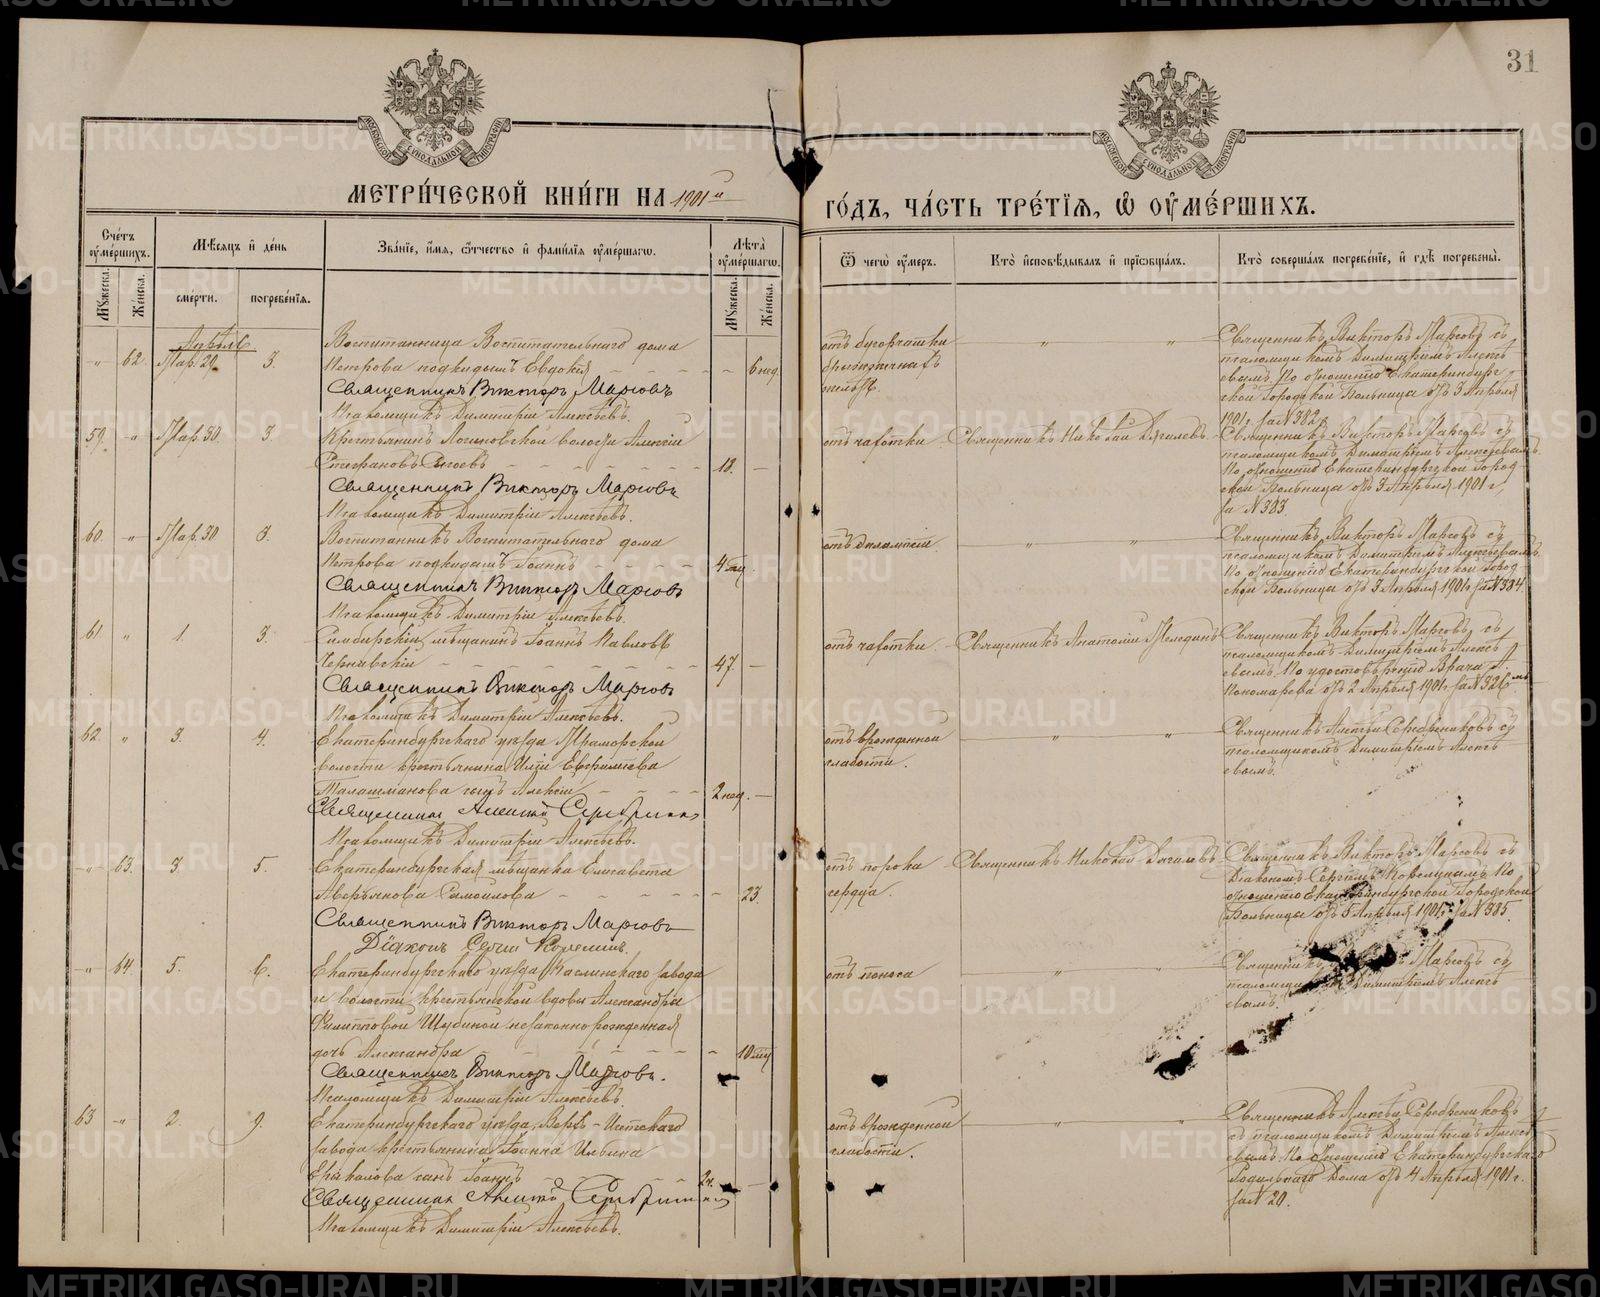 31
МЕТРИ́ЧЕСКОЙ КНИ́ГИ НА 1901й
ГО́ДЪ, ЧА́СТЬ ТРЕ́ТІЯ, Ѿ ОУМЕ́РШИХЪ.
Сче́тъ оумершихъ.
Мѣсяцъ и де́нь
Зва́ніе, и́мя, о́тчество и фами́лія оуме́ршагѡ.
Лѣта̀ оуме́ршагѡ.
Ѿ чегѡ̀ оу́меръ.
Кто̀ исповѣ́дывалъ и пріѡбща́лъ.
Кто̀ соверша́лъ погребе́ніе, и гдѣ̀ погребены̀.
Мꙋжеска.
Же́нска.
сме́рти.
погребе́нія.
Мꙋжеска.
Же́нска.
Апрѣль
" 62. Мар. 29. 3. Воспитанница Воспитательнаго дома
Петрова подкидышъ Евдокія 6 нед.
Священникъ Викторъ Марковъ
Псаломщикъ Димитрій Алексѣевъ.
отъ бугорчатки
Священникъ Викторъ Марковъ съ
псаломщикомъ Димитріемъ Алексѣ-
евымъ. По отношенію Екатеринбург-
ской Городской Больницы отъ 3 Апрѣля
1901 г. за № 382.
59. " Мар. 30. 3. Крестьянинъ волости Алексій
Стефановъ 18.
Священникъ Викторъ Марковъ
Псаломщикъ Димитрій Алексѣевъ.
отъ чахотки. Священникъ Николай Дягилевъ.
Священникъ Викторъ Марковъ съ
псаломщикомъ Димитріемъ Алексѣевымъ.
По отношенію Екатеринбургской Город-
ской Больницы отъ 3 Апрѣля 1901 г.
за № 383
60. " Мар. 30 3. Воспитанникъ Воспитательнаго дома
Петрова подкидышъ Іоаннъ 4
Священникъ Викторъ Марковъ
Псаломщикъ Димитрій Алексѣевъ.
отъ эклампсіи.
Священникъ Викторъ Марковъ съ
псаломщикомъ Димитріемъ Алексѣевымъ.
По отношенію Екатеринбургской Город-
ской Больницы отъ 3 Апрѣля 1901 г. за № 384.
61. " 1. 3. Симбирскій мѣщанинъ Іоаннъ Павловъ
Чернявскій 47.
Священникъ Викторъ Марковъ
Псаломщикъ Димитрій Алексѣевъ.
отъ чахотки. Священникъ Анатолій
Священникъ Викторъ Марковъ съ
псаломщикомъ Димитріемъ Алексѣ-
евымъ. По удостовѣренію Врача
Пономарева отъ 2 Апрѣля 1901 г. за № 326
62. " 3. 4. Екатеринбургскаго уѣзда Мраморской
волости крестьянина Иліи Евфиміева
Талашманова сынъ Алексій 2 нед.
Священникъ Алексій Серебрениковъ
Псаломщикъ Димитрій Алексѣевъ.
отъ врожденной
слабости.
Священникъ Алексій Серебрениковъ съ
псаломщикомъ Димитріемъ Алексѣ-
евымъ.
" 63. 3 5. Екатеринбургская мѣщанка Елисавета
Аверьянова Самойлова 23.
Священникъ Викторъ Марковъ
Діаконъ Сергій
отъ порока
сердца.
Священникъ Николай Дягилевъ.
Священникъ Викторъ Марковъ съ
Діакономъ Сергіемъ По
отношенію Екатеринбургской Городской
Больницы отъ 5 Апрѣля 1901 г. за № 385.
" 64. 5. 6. Екатеринбургскаго уѣзда, Каслинскаго завода
и волости, крестьянской вдовы Александры
Филипповой Шубиной незаконнорожденная
дочь Александра 10
Священникъ Викторъ Марковъ.
Псаломщикъ Димитрій Алексѣевъ.
отъ поноса
Священникъ Марковъ съ
Димитріемъ Алексѣ-
евымъ.
63 " 2. 9. Екатеринбургскаго уѣзда, Верхъ-Исетскаго
завода крестьянина Іоанна Ильина
сынъ Іоаннъ 2
Священникъ Алексій Серебрениковъ
Псаломщикъ Димитрій Алексѣевъ.
отъ врожденной
слабости.
Священникъ Алексій Серебрениковъ
съ псаломщикомъ Димитріемъ Алексѣ-
евымъ. По отношенію Екатеринбургскаго
Родильнаго Дома отъ 4 Апрѣля 1901 г.
за № 20.
METRIKI.GASO-URAL.RU